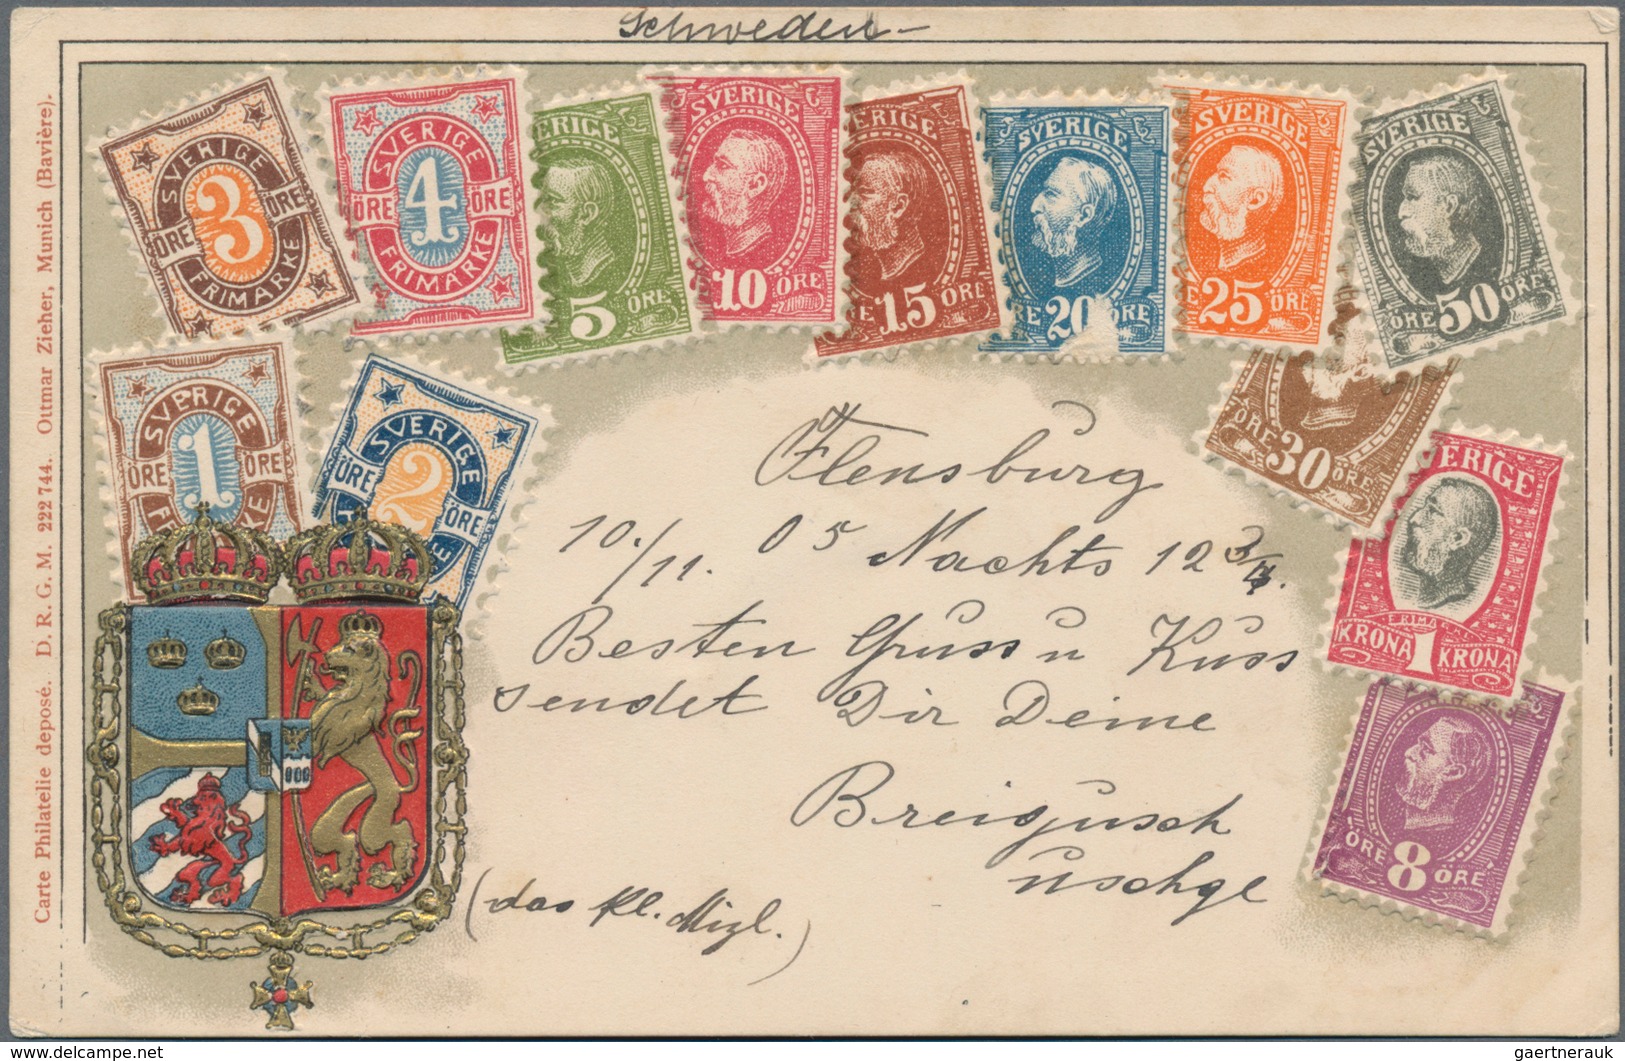 Schweden-
Carte Philatelie deposé. D. R. G. M. 222 744. Ottmar Zieher, Munich (Bavière).
SVERIGE
3
ÖRE ÖRE
FRIMARKE
SVERIGE
4
ÖRE ÖRE
FRIMARKE
ERIGE
5 ÖRE
SVERIGE
10 ÖRE
ERIGE
15 ÖRE
SVERIGE
RE 20 ÖRE
SVERIGE
E 25 ÖRE
SVERIGE
ÖRE 50 ÖRE
SVERIGE
1
ÖRE ÖRE
SVERIGE
2
ÖRE ÖRE
ÖRE 30 ÖRE
ERIGE
KRONA 1 KRONA
ÖRE 8 ÖRE
Flensburg
10./11. 05 Nachts 12 3/4.
Besten Gruss u Kuss
sendet Dir Deine
(das kl. Mizl.)
delcampe.net
gaertnerauk